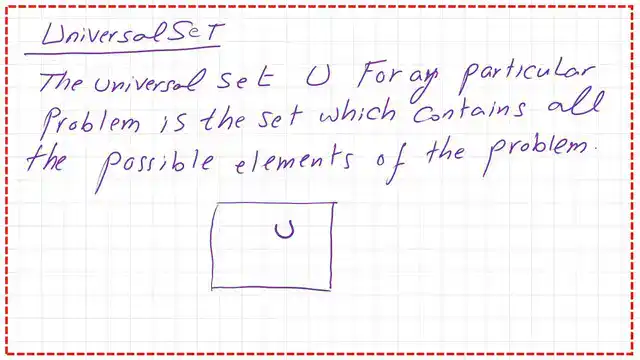 Universal Set
The universal set U For any particular
Problem is the set which contains all
the possible elements of the problem.
U